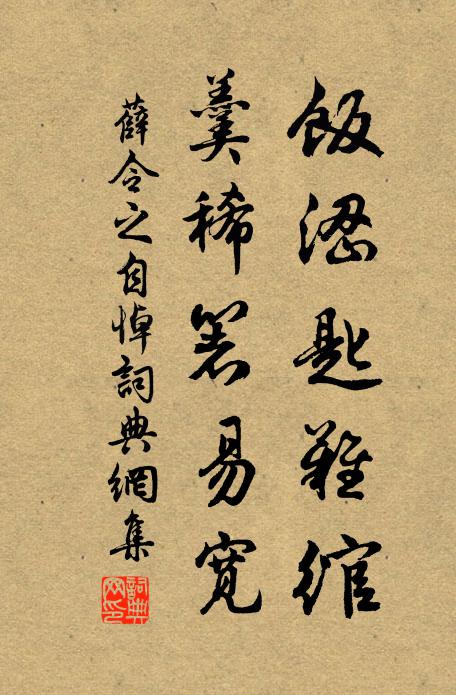 飯澀匙難綰
羹稀箸易寬
薛令之自悼詞典網集
詞典网印